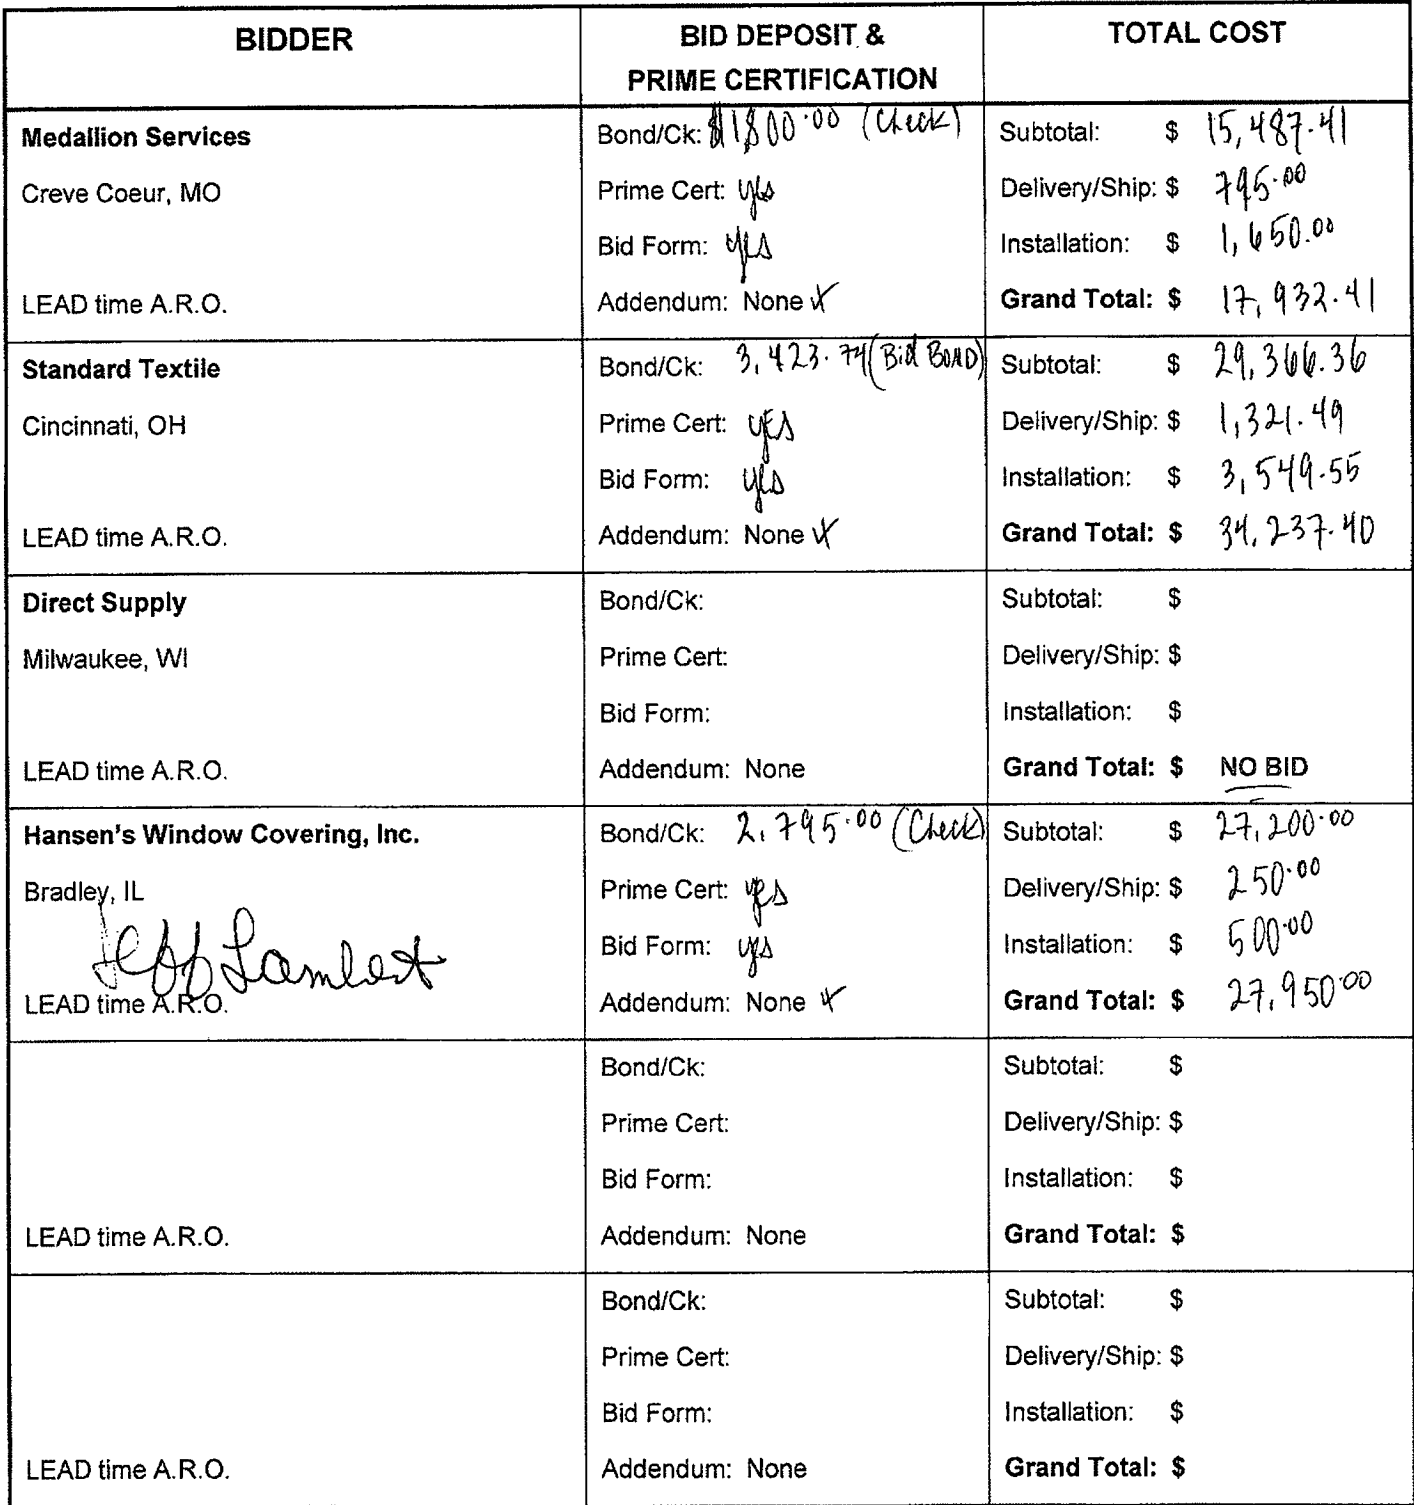 BIDDER
BID DEPOSIT &
PRIME CERTIFICATION
TOTAL COST
Medallion Services
Creve Coeur, MO
LEAD time A.R.O.
Bond/Ck: $1800.00 (Check)
Prime Cert: yes
Bid Form: yes
Addendum: None X
Subtotal: $ 15,487.41
Delivery/Ship: $ 795.00
Installation: $ 1,650.00
Grand Total: $ 17,932.41
Standard Textile
Cincinnati, OH
LEAD time A.R.O.
Bond/Ck: 3,423.74 (Bid BOND)
Prime Cert: yes
Bid Form: yes
Addendum: None X
Subtotal: $ 29,366.36
Delivery/Ship: $ 1,321.49
Installation: $ 3,549.55
Grand Total: $ 34,237.40
Direct Supply
Milwaukee, WI
LEAD time A.R.O.
Bond/Ck:
Prime Cert:
Bid Form:
Addendum: None
Subtotal: $
Delivery/Ship: $
Installation: $
Grand Total: $ NO BID
Hansen's Window Covering, Inc.
Bradley, IL
Jeff Lambert
LEAD time A.R.O.
Bond/Ck: 2,795.00 (Check)
Prime Cert: yes
Bid Form: yes
Addendum: None X
Subtotal: $ 27,200.00
Delivery/Ship: $ 250.00
Installation: $ 500.00
Grand Total: $ 27,950.00
LEAD time A.R.O.
Bond/Ck:
Prime Cert:
Bid Form:
Addendum: None
Subtotal: $
Delivery/Ship: $
Installation: $
Grand Total: $
LEAD time A.R.O.
Bond/Ck:
Prime Cert:
Bid Form:
Addendum: None
Subtotal: $
Delivery/Ship: $
Installation: $
Grand Total: $